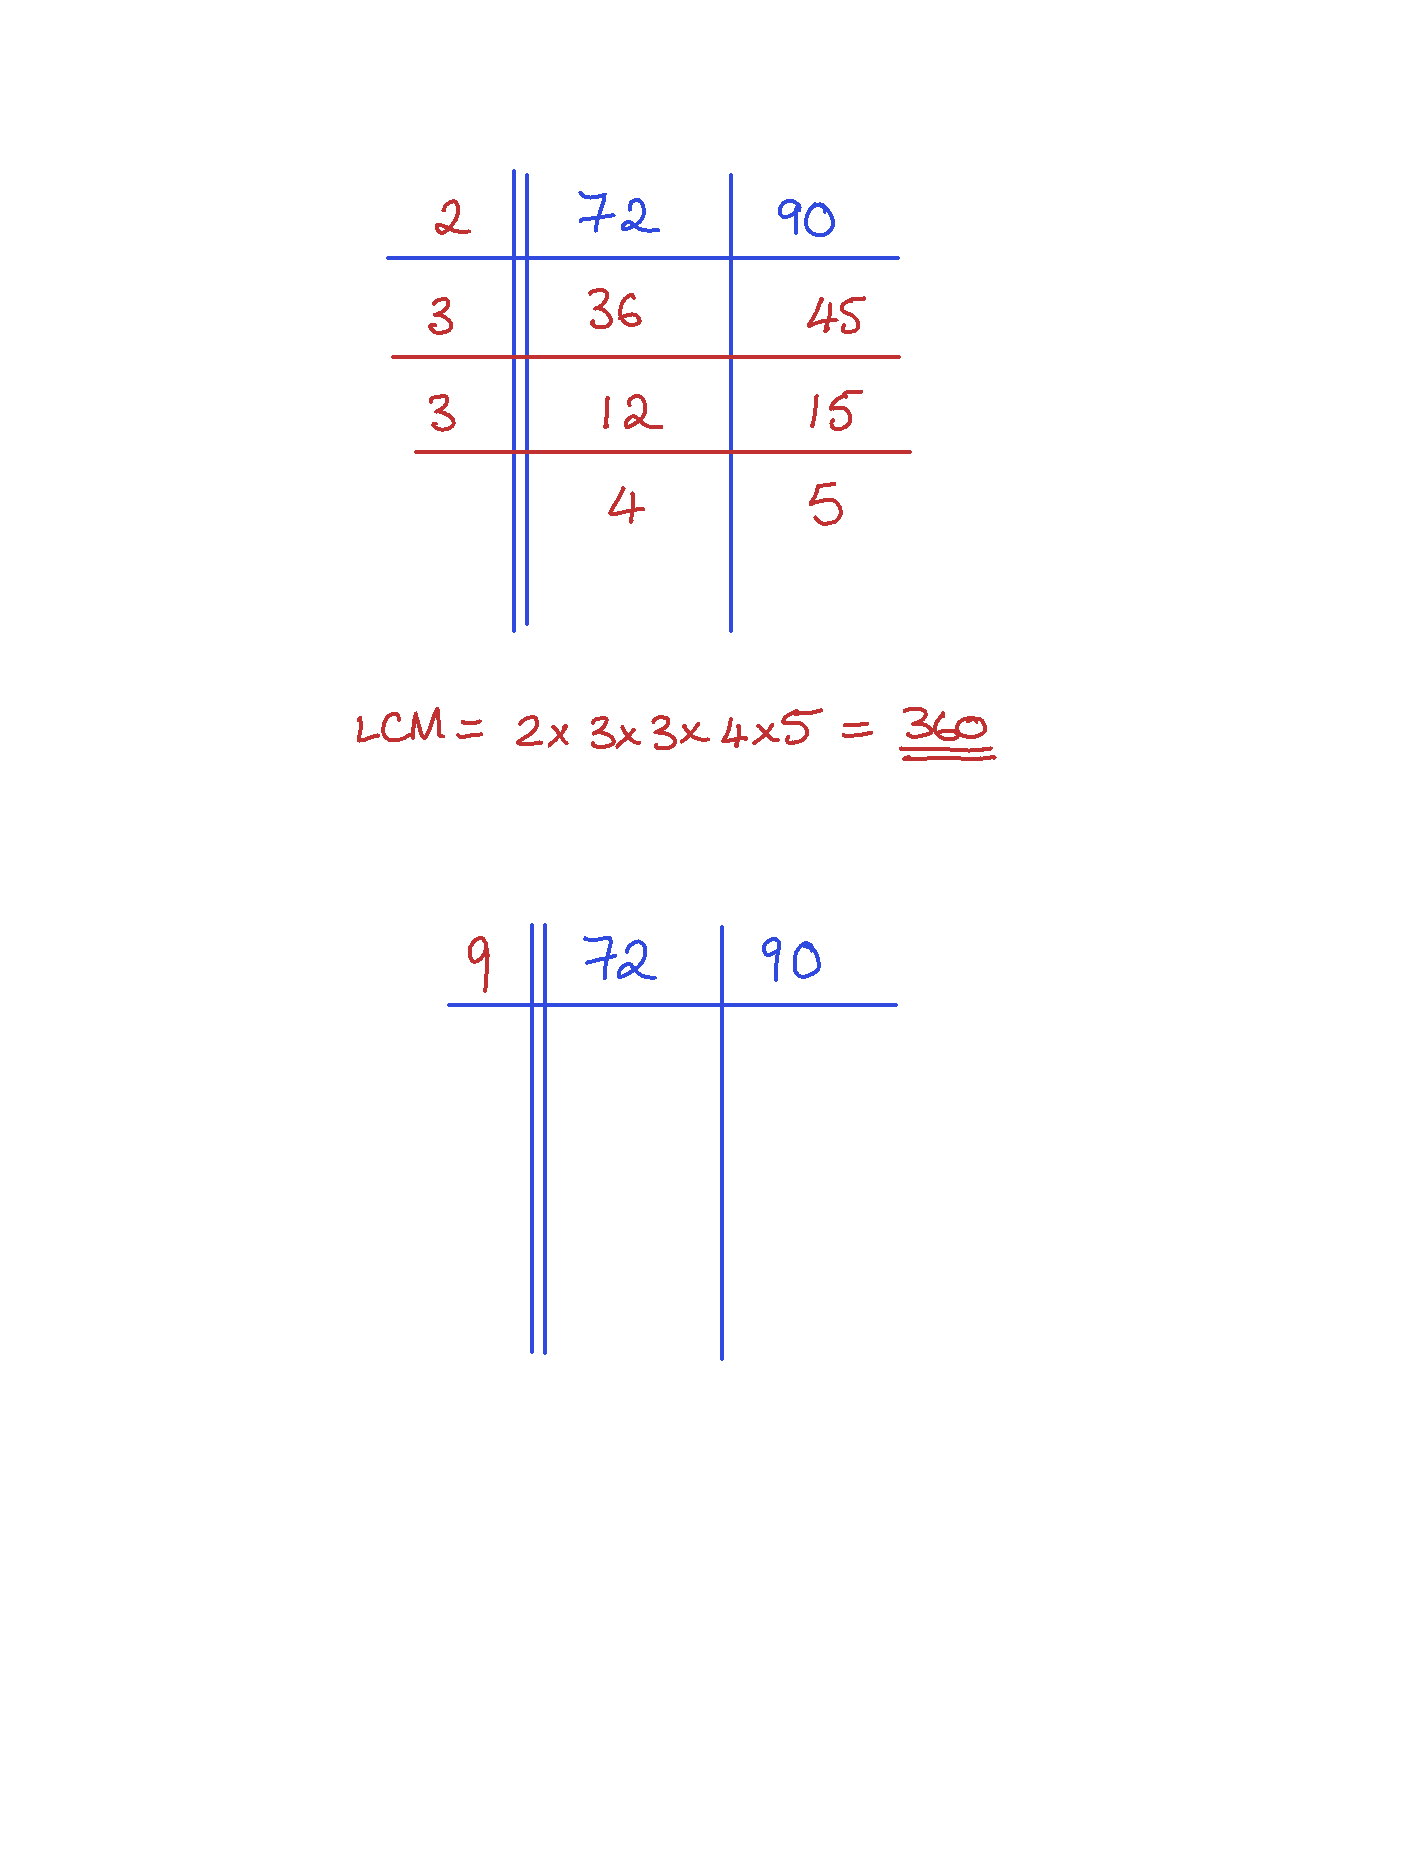 2 72 90
3 36 45
3 12 15
4 5
LCM = 2 x 3 x 3 x 4 x 5 = 360
9 72 90